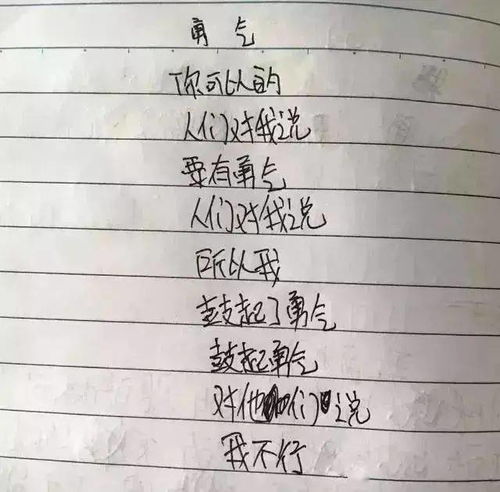 勇气
你可以的
人们对我说
要有勇气
人们对我说
所以我
鼓起了勇气
鼓起勇气
对他们说
我不行